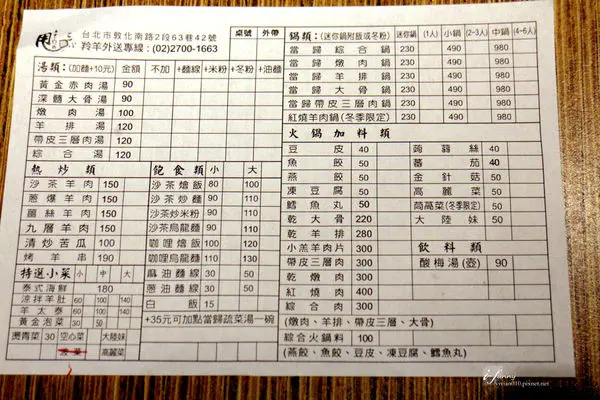 台北市敦化南路2段63巷42號
羚羊外送專線：(02)2700-1663
桌號 外帶
湯類：(加麵+10元) 金額 不加 +麵線 +米粉 +冬粉 +油麵
黃金赤肉湯 90
深髓大骨湯 90
燉肉湯 100
羊排湯 120
帶皮三層肉湯 120
綜合湯 120
熱炒類
沙茶羊肉 150
蔥爆羊肉 150
薑絲羊肉 150
九層羊肉 150
清炒苦瓜 100
烤羊串 190
特選小菜 小 中 大
泰式海鮮 180
涼拌羊肚 60 100 140
羊太泰 60 100 140
黃金泡菜 30 50
燙青菜 30 空心菜 大陸妹
菠菜 高麗菜
飽食類 小 大
沙茶燴飯 80 100
沙茶炒麵 90 120
沙茶炒米粉 90 120
沙茶烏龍麵 90 120
咖哩燴飯 100 120
咖哩炒麵 100 120
麻油麵線 30 50
蔥油麵線 30 50
白飯 15
+35元可加點當歸蔬菜湯一碗
鍋類：(迷你鍋附飯或冬粉) 迷你鍋 (1人) 小鍋 (2-3人) 中鍋 (4-6人)
當歸綜合鍋 230 490 980
當歸燉肉鍋 230 490 980
當歸羊排鍋 230 490 980
當歸大骨鍋 230 490 980
當歸帶皮三層肉鍋 230 490 980
紅燒羊肉鍋(冬季限定) 230 490 980
火鍋加料類
豆皮 40
魚餃 50
燕餃 50
凍豆腐 50
鱈魚丸 50
乾大骨 220
乾羊排 280
小羔羊肉片 300
帶皮三層肉 300
乾燉肉 300
紅燒肉 400
綜合肉 300
(燉肉、羊排、帶皮三層、大骨)
綜合火鍋料 100
(燕餃、魚餃、豆皮、凍豆腐、鱈魚丸)
蒟蒻絲 40
蕃茄 40
金針菇 50
高麗菜 50
茼萵菜(冬季限定) 50
大陸妹 50
飲料類
酸梅湯(壺) 90